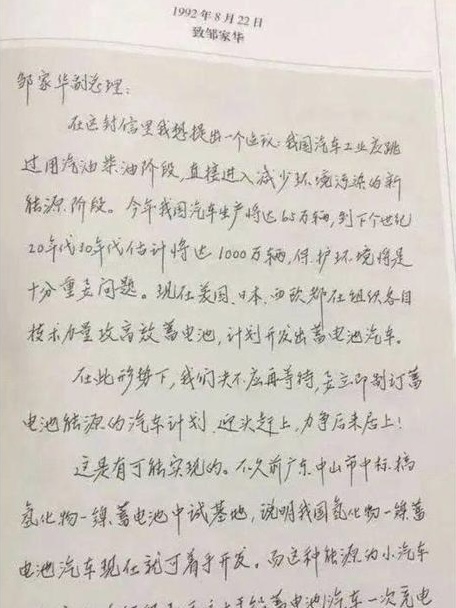 1992年8月22日
致邹家华
邹家华副总理:
在这封信里我想提出一个建议:我国汽车工业应跳
过用汽油柴油阶段,直接进入减少环境污染的新
能源阶段。今年我国汽车生产将达65万辆,到下个世纪
20年代30年代估计将达1000万辆,保护环境将是
十分重要问题。现在美国、日本、西欧都在组织各自
技术力量攻高效蓄电池,计划开发出蓄电池汽车。
在此形势下,我们决不应再等待,要立即制订蓄
电池能源的汽车计划,迎头赶上,力争后来居上!
这是有可能实现的。不久前广东中山市中标搞
氢化物-镍蓄电池中试基地,说明我国氢化物-镍蓄
电池汽车现在就可着手开发。而这种能源的小汽车
蓄电池汽车一次充电